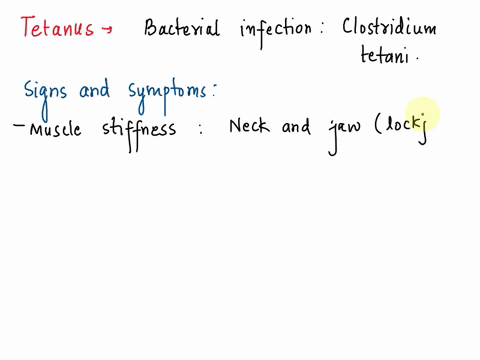 Tetanus → Bacterial infection : Clostridium
tetani.
Signs and symptoms :
- Muscle stiffness : Neck and jaw (lockj